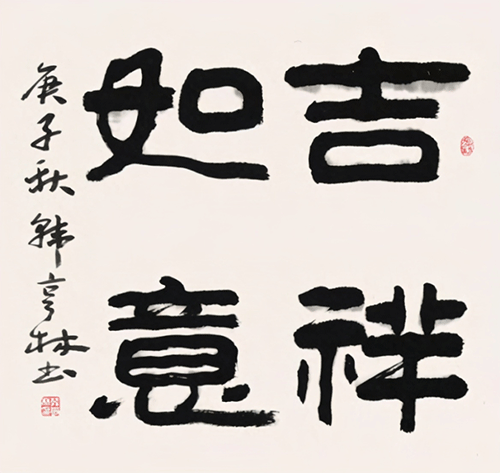 吉祥
如意
庚子秋韩亨林书